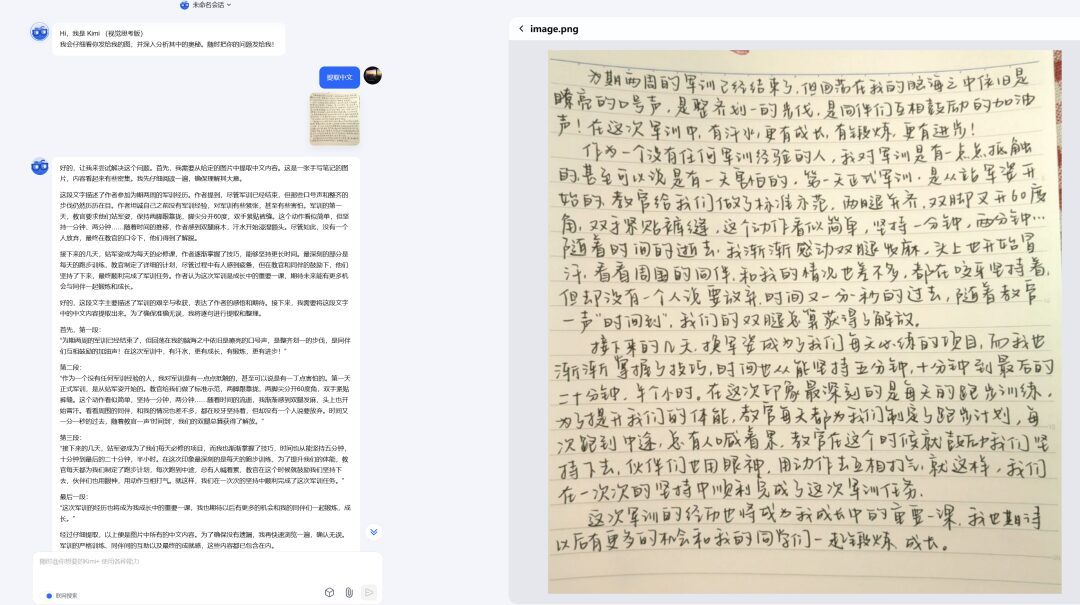 未命名会话
Hi，我是 Kimi （视觉思考版）
我会仔细看你发给我的图，并深入分析其中的奥秘。随时把你的问题发给我！
提取中文
好的，让我来尝试解决这个问题。首先，我需要从给定的图片中提取中文内容。这是一张手写笔记的图
片，内容看起来有些密集。我先仔细阅读一遍，确保理解其大意。
这段文字描述了作者参加为期两周的军训经历。作者提到，尽管军训已经结束，但那些口号声和整齐的
步伐仍然历历在目。作者坦诚自己之前没有军训经验，对军训有些紧张，甚至有些害怕。军训的第一
天，教官要求他们站军姿，保持两脚跟靠拢，脚尖分开60度，双手紧贴裤缝。这个动作看似简单，但坚
持一分钟，两分钟……随着时间的推移，作者感到双腿麻木，汗水开始浸湿额头。尽管如此，没有一个
人放弃，最终在教官的口令下，他们得到了解脱。
接下来的几天，站军姿成为每天的必修课，作者逐渐掌握了技巧，能够坚持更长时间。最深刻的部分是
每天的跑步训练，教官制定了详细的计划，尽管过程中有人感到疲惫，但在教官和同伴的鼓励下，他们
坚持了下来，最终顺利完成了军训任务。作者认为这次军训是成长中的重要一课，期待未来能有更多机
会与同伴一起锻炼和成长。
好的，这段文字主要描述了军训的艰辛与收获，表达了作者的感悟和期待。接下来，我需要将这段文字
中的中文内容提取出来。为了确保准确无误，我将逐句进行提取和整理。
首先，第一段：
“为期两周的军训已经结束了，但回荡在我的脑海之中依旧是嘹亮的口号声，是整齐划一的步伐，是同伴
们互相鼓励的加油声！在这次军训中，有汗水，更有成长，有锻炼，更有进步！”
第二段：
“作为一个没有任何军训经验的人，我对军训是有一点点抵触的，甚至可以说是有一丁点害怕的。第一天
正式军训，是从站军姿开始的。教官给我们做了标准示范，两脚跟靠拢，两脚尖分开60度角，双手紧贴
裤缝。这个动作看似简单，坚持一分钟，两分钟……随着时间的流逝，我渐渐感到双腿发麻，头上也开
始冒汗。看看周围的同伴，和我的情况也差不多，都在咬牙坚持着，但却没有一个人说要放弃。时间又
一分一秒的过去，随着教官一声‘时间到’，我们的双腿总算获得了解放。”
第三段：
“接下来的几天，站军姿成为了我们每天必修的项目，而我也渐渐掌握了技巧，时间也从能坚持五分钟，
十分钟到最后的二十分钟，半小时。在这次印象最深刻的是每天的跑步训练，为了提升我们的体能，教
官每天都为我们制定了跑步计划，每次跑到中途，总有人喊着累，教官在这个时候就鼓励我们坚持下
去，伙伴们也用眼神，用动作互相打气。就这样，我们在一次次的坚持中顺利完成了这次军训任务。”
最后一段：
“这次军训的经历也将成为我成长中的重要一课，我也期待以后有更多的机会和我的同伴们一起锻炼，成
长。”
经过仔细提取，以上便是图片中所有的中文内容。为了确保没有遗漏，我再快速浏览一遍，确认无误。
军训的严格训练、同伴间的互助以及最终的成就感，这些内容都已包含在内。
联网搜索
image.png
为期两周的军训已经结束了，但回荡在我的脑海之中依旧是
嘹亮的口号声，是整齐划一的步伐，是同伴们互相鼓励的加油
声！在这次军训中，有汗水，更有成长，有锻炼，更有进步！
作为一个没有任何军训经验的人，我对军训是有一点点抵触
的，甚至可以说是有一天害怕的。第一天正式军训，是从站军姿开
始的。教官给我们做了标准示范，两腿并齐，双脚叉开60度
角，双手紧贴裤缝，这个动作看似简单，坚持一分钟，两分钟…
随着时间的逝去，我渐渐感动双腿发麻，头上也开始冒
汗，看看周围的同伴，和我的情况也差不多，都在咬牙坚持着，
但却没有一个人说要放弃，时间又一分一秒的过去，随着教官
一声“时间到”，我们的双腿总算获得了解放。
接下来的几天，换军姿成为了我们每天必练的项目，而我也
渐渐掌握了技巧，时间也从能坚持五分钟，十分钟到最后的
二十分钟，半个小时。在这次印象最深刻的是每天的跑步训练，
为了提升我们的体能，教官每天都为我们制定了跑步计划，每
次跑到中途，总有人喊着累，教官在这个时候就鼓励我们坚
持下去，伙伴们也用眼神，用动作去互相打气，就这样，我们
在一次次的坚持中顺利完成了这次军训任务。
这次军训的经历也将成为我成长中的重要一课，我也期待
以后有更多的机会和我的同学们一起锻炼，成长。